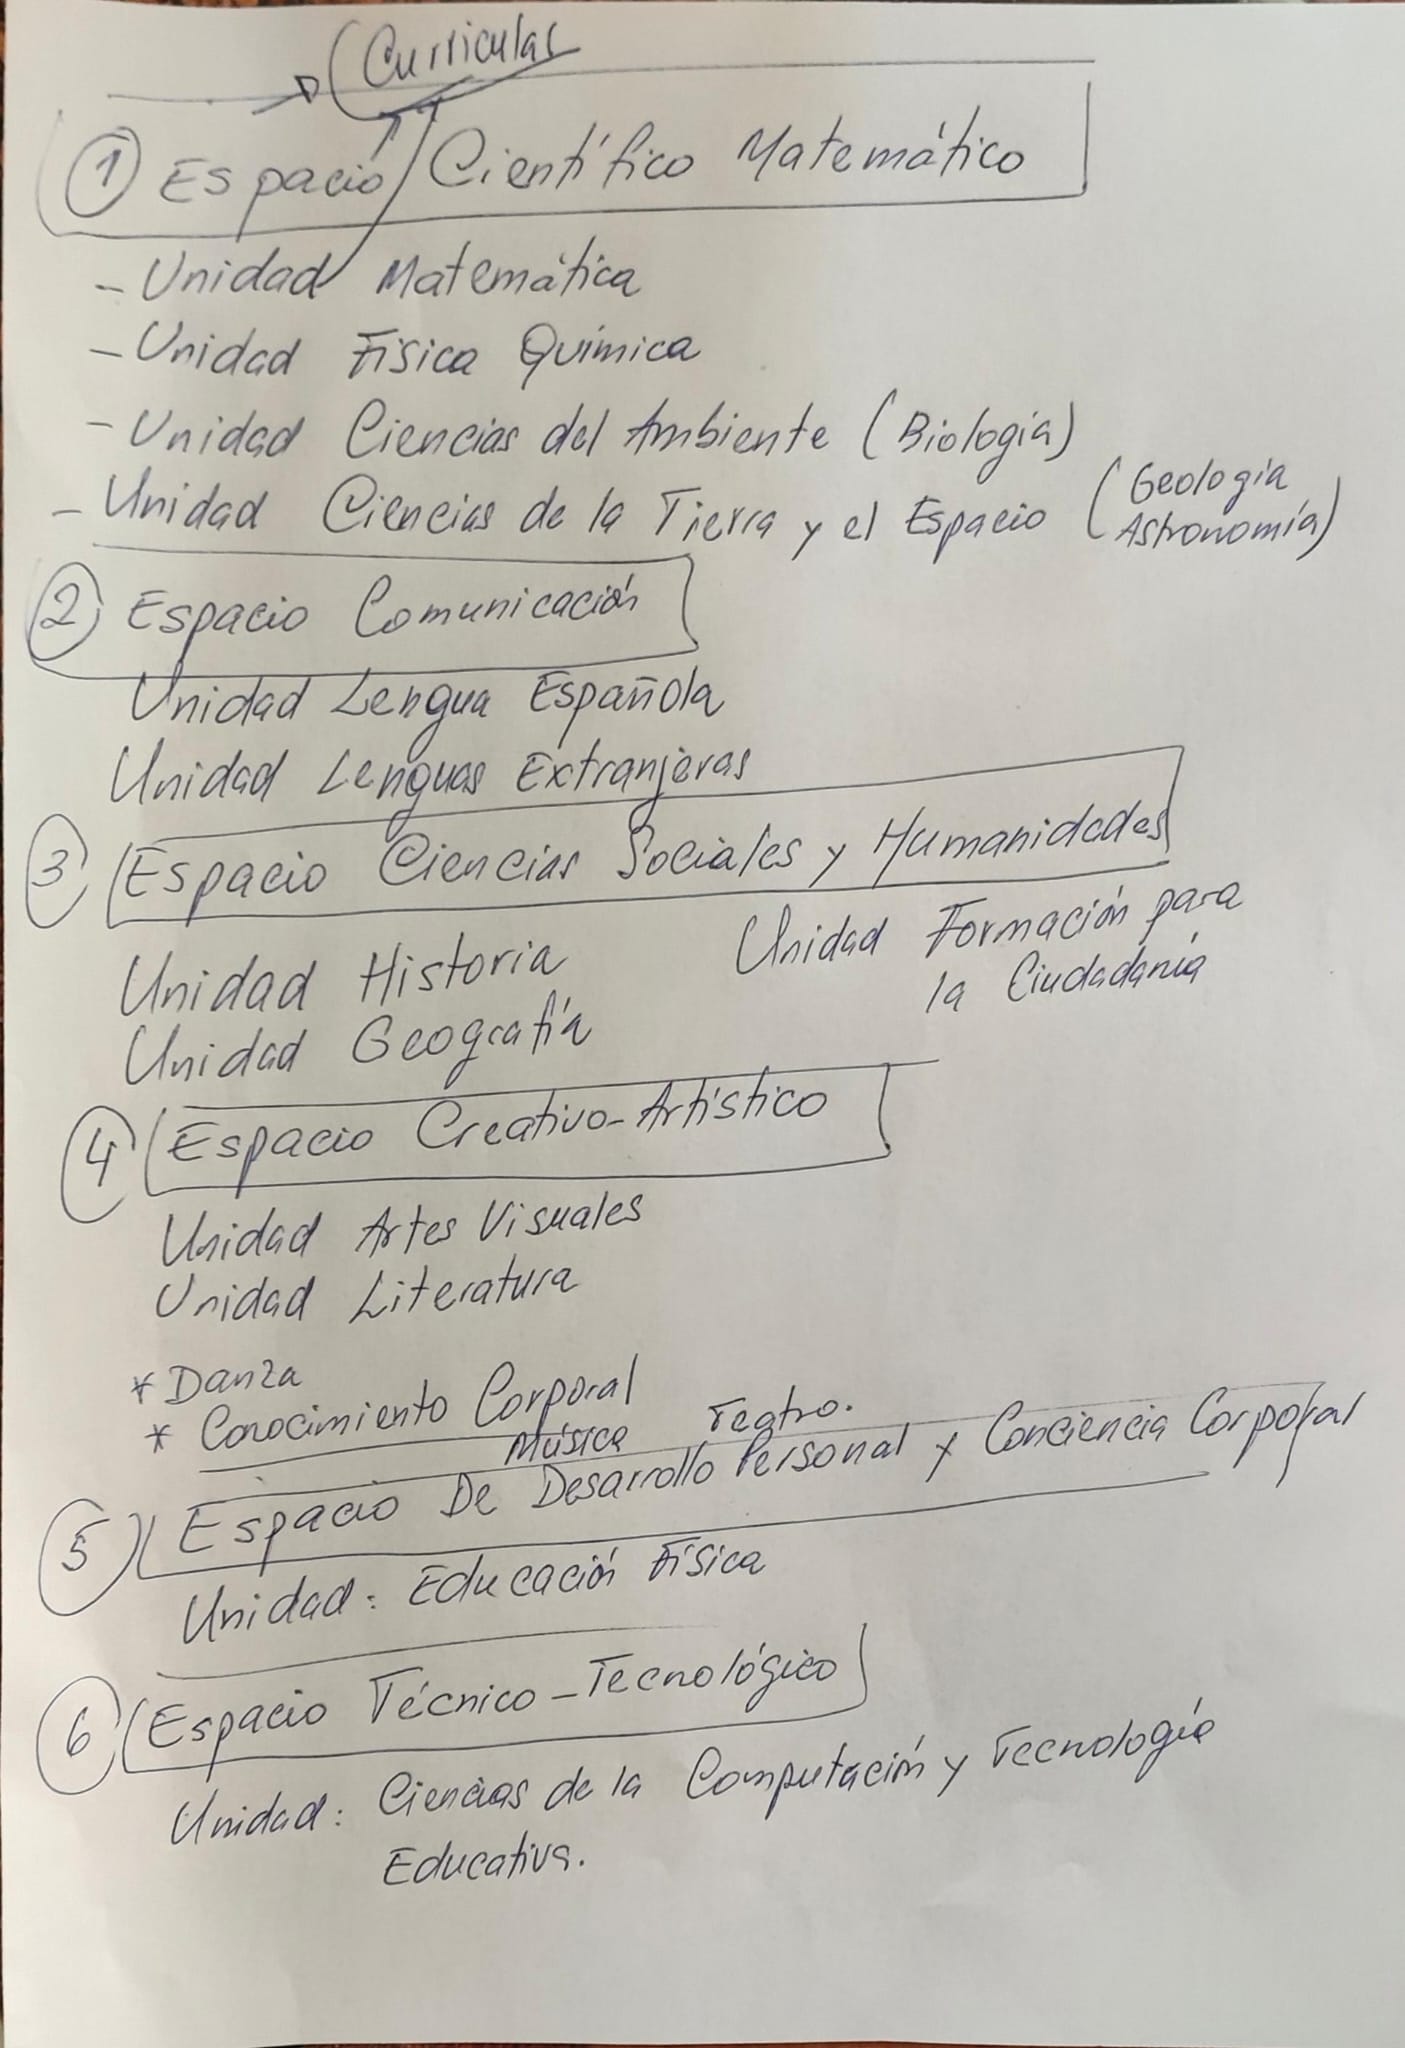 Curricular
1 Espacio Científico Matemático
- Unidad Matemática
- Unidad Física Química
- Unidad Ciencias del Ambiente (Biología)
- Unidad Ciencias de la Tierra y el Espacio (Geología
Astronomía)
2 Espacio Comunicación
Unidad Lengua Española
Unidad Lenguas Extranjeras
3 Espacio Ciencias Sociales y Humanidades
Unidad Historia
Unidad Formación para
la Ciudadanía
Unidad Geografía
4 Espacio Creativo-Artístico
Unidad Artes Visuales
Unidad Literatura
* Danza
* Conocimiento Corporal
Música Teatro.
5 Espacio De Desarrollo Personal y Conciencia Corporal
Unidad: Educación Física
6 Espacio Técnico-Tecnológico
Unidad: Ciencias de la Computación y Tecnología
Educativa.